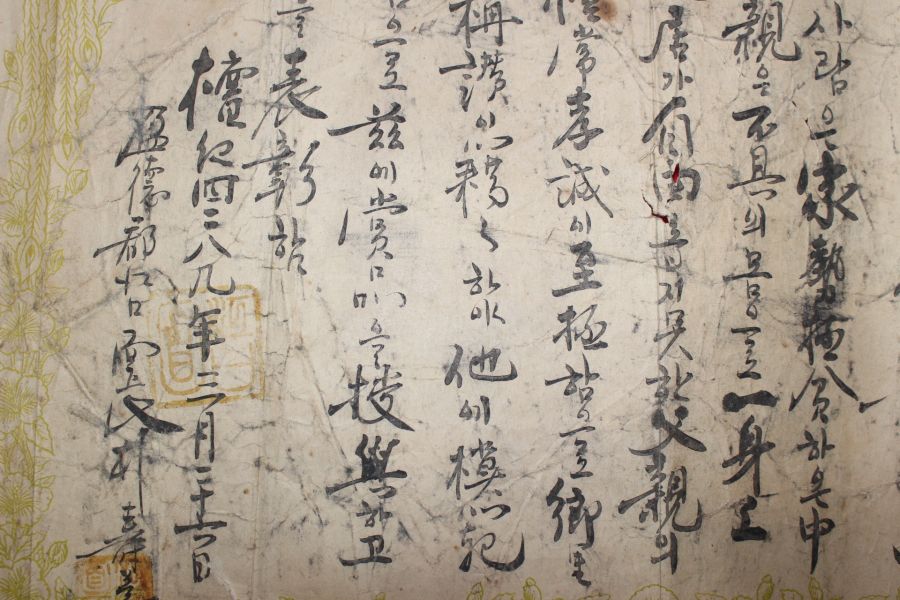 사람은 家勢極貧하온 中
親은 不具의 몸으로 一身上
居가 自由롭지 못한 父親의
恒常 孝誠이 至極함으로 鄕里
稱讚이 藉藉하며 他에 模範
으로 玆에 賞品을 授與하고
를 表彰함
檀紀四二八九年三月二十六日
盈德郡 面長